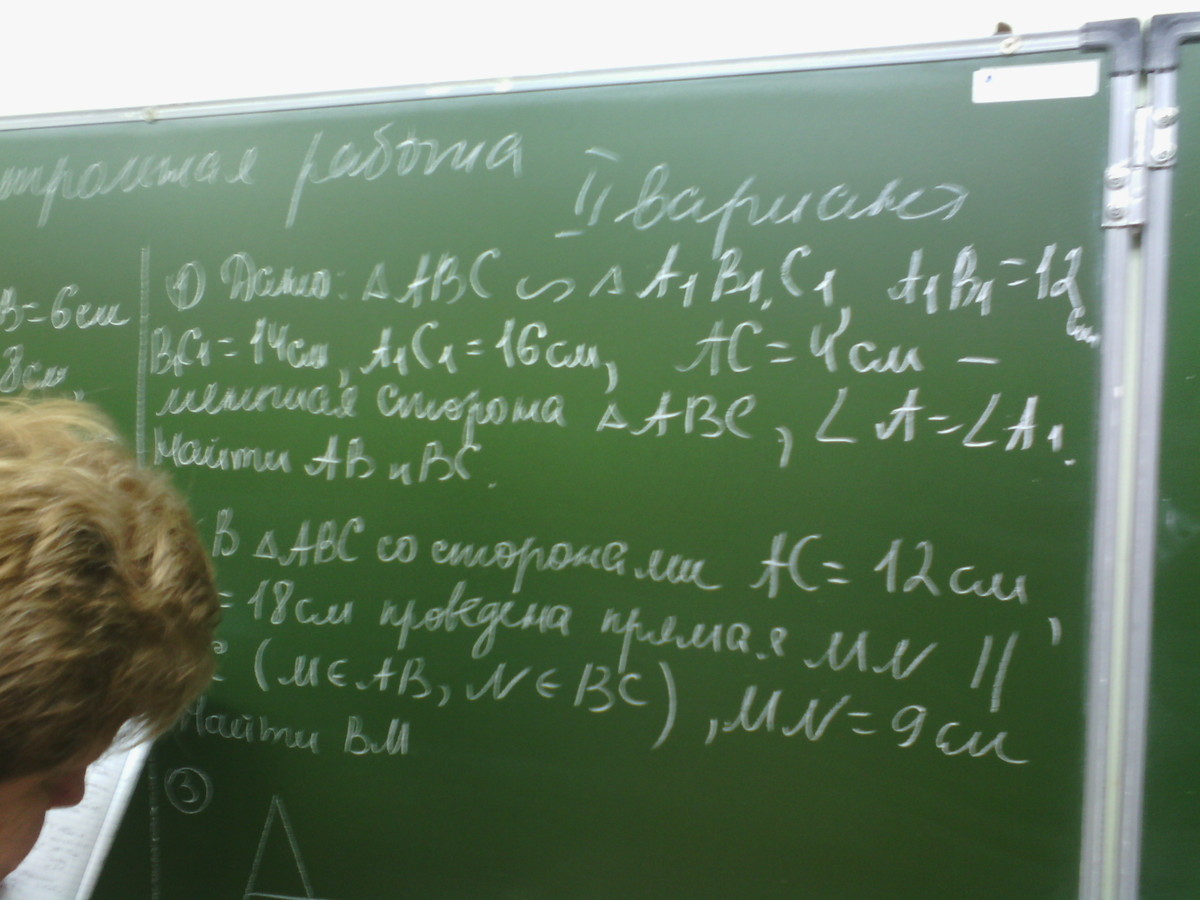 трольная работа
II вариант
В=6см
8см,
① Дано: △ABC ∽ △A₁B₁C₁, A₁B₁=12 см,
B₁C₁=14см, A₁C₁=16см, AC=4см –
меньшая сторона △ABC, ∠A=∠A₁.
Найти AB и BC.
В △ABC со сторонами AC= 12см,
=18см проведена прямая MN ||
(M∈AB, N∈BC), MN=9см
Найти BM
③